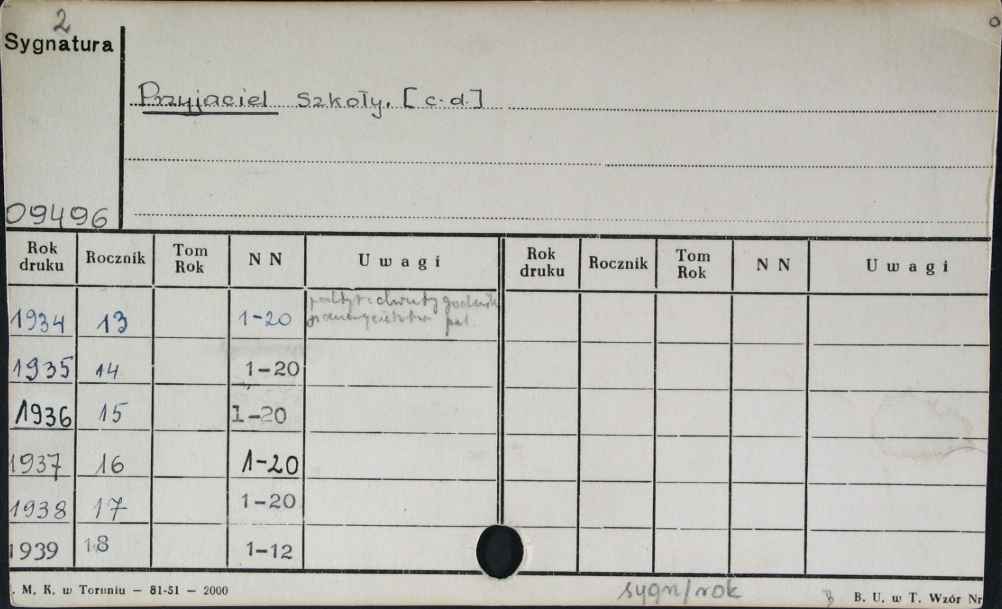 2
Sygnatura
Przyjaciel Szkoły. [c.d.]
09496
Rok druku Rocznik Tom Rok NN Uwagi Rok druku Rocznik Tom Rok NN Uwagi
1934 13 1-20
1935 14 1-20
1936 15 1-20
1937 16 1-20
1938 17 1-20
1939 18 1-12
. M. K. w Toruniu — 81-51 — 2000
sygn/rok
B. U. w T. Wzór Nr